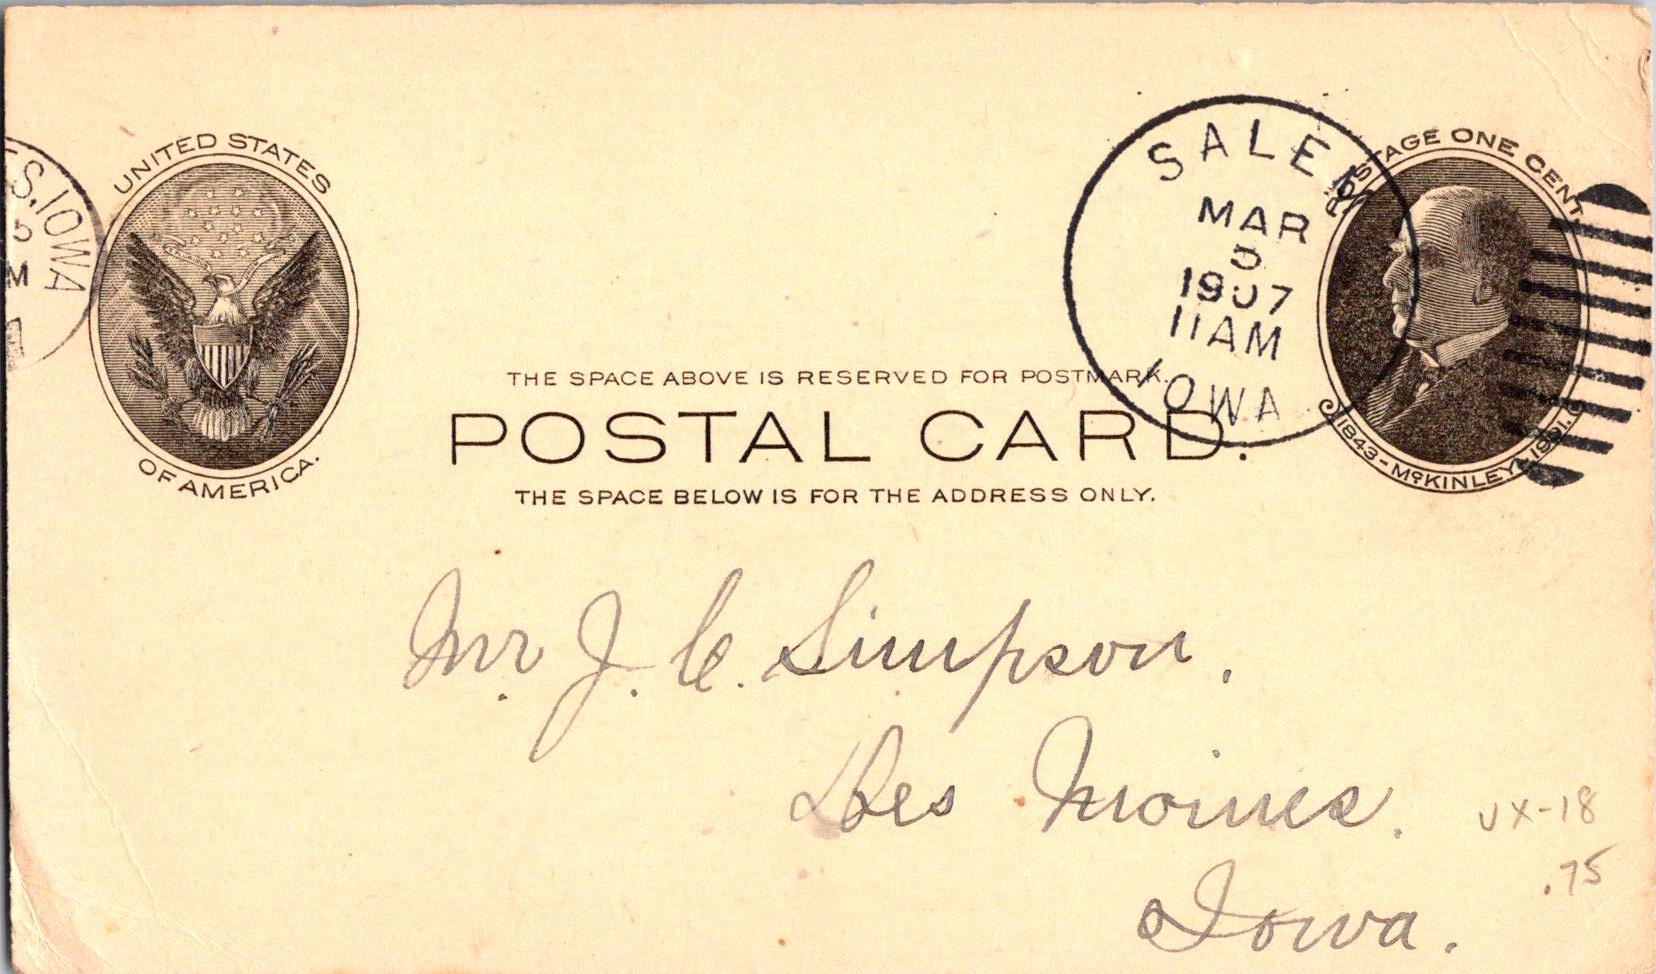 UNITED STATES
OF AMERICA.
S, IOWA
5
M
SALEM
MAR
5
1907
11AM
IOWA
POSTAGE ONE CENT.
1843-McKINLEY-1901.
THE SPACE ABOVE IS RESERVED FOR POSTMARK.
POSTAL CARD.
THE SPACE BELOW IS FOR THE ADDRESS ONLY.
Mr. J. C. Simpson.
Des Moines.
Iowa.
UX-18
.75